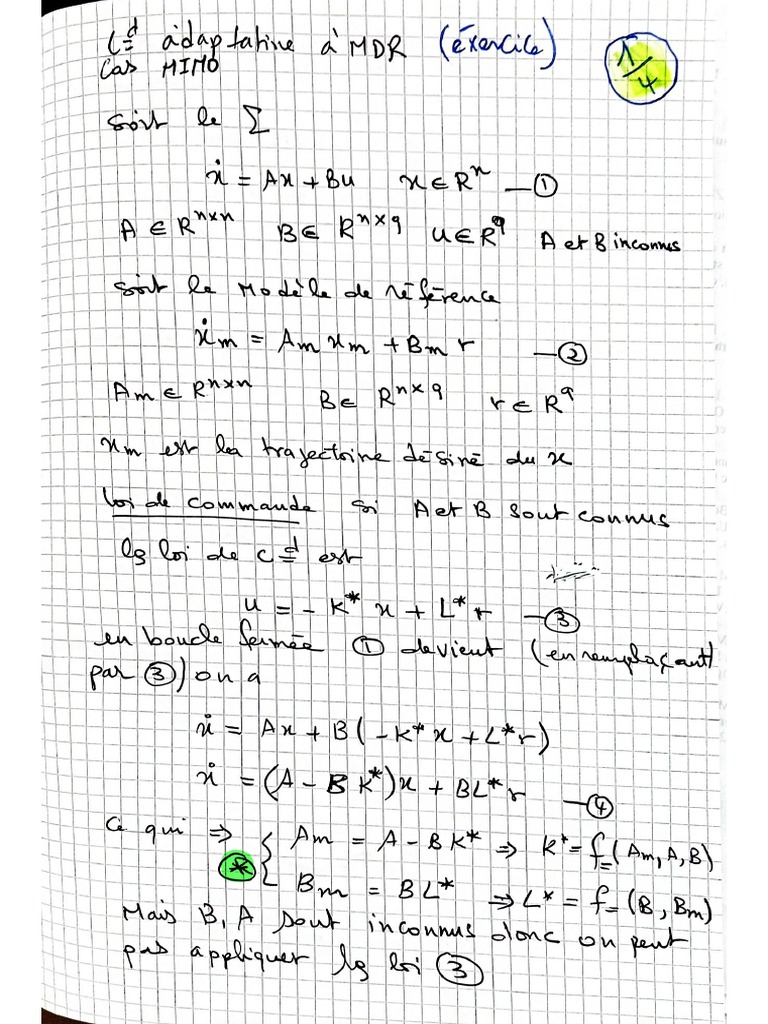 Cᵈ adaptative à MDR (éxercice)
1/4
Cas MIMO
soit le Σ
ẋ = Ax + Bu x ∈ Rⁿ — ①
A ∈ Rⁿˣⁿ B ∈ Rⁿˣq u ∈ Rq A et B inconnus
soit le Modèle de référence
ẋm = Am xm + Bm r — ②
Am ∈ Rⁿˣⁿ B ∈ Rⁿˣq r ∈ Rq
xm est la trajectoire désiré du x
loi de commande si A et B sont connus
la loi de cᵈ est
u = - K* x + L* r — ③
en boucle fermée ① devient (en remplaçant
par ③) on a
ẋ = Ax + B(-K* x + L* r)
ẋ = (A - B K*)x + BL* r — ④
Ce qui ⇒ { Am = A - BK* ⇒ K* = f(Am, A, B)
⊛ Bm = BL* ⇒ L* = f(B, Bm)
Mais B, A sont inconnus donc on peut
pas appliquer la loi ③